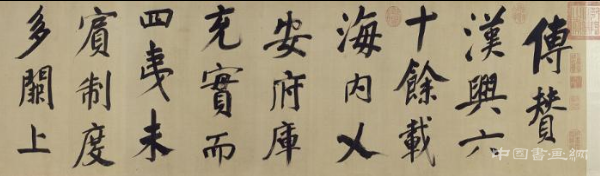 傳贊
漢興六
十餘載
海内乂
安府庫
充實而
四夷未
賓制度
多闕上
中國書画網